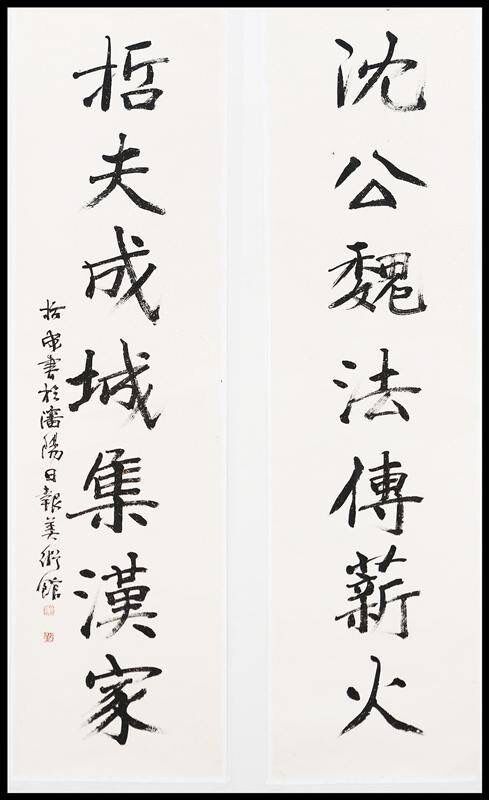 沈公魏法傳薪火
哲夫成城集漢家
書於瀋陽日報美術館